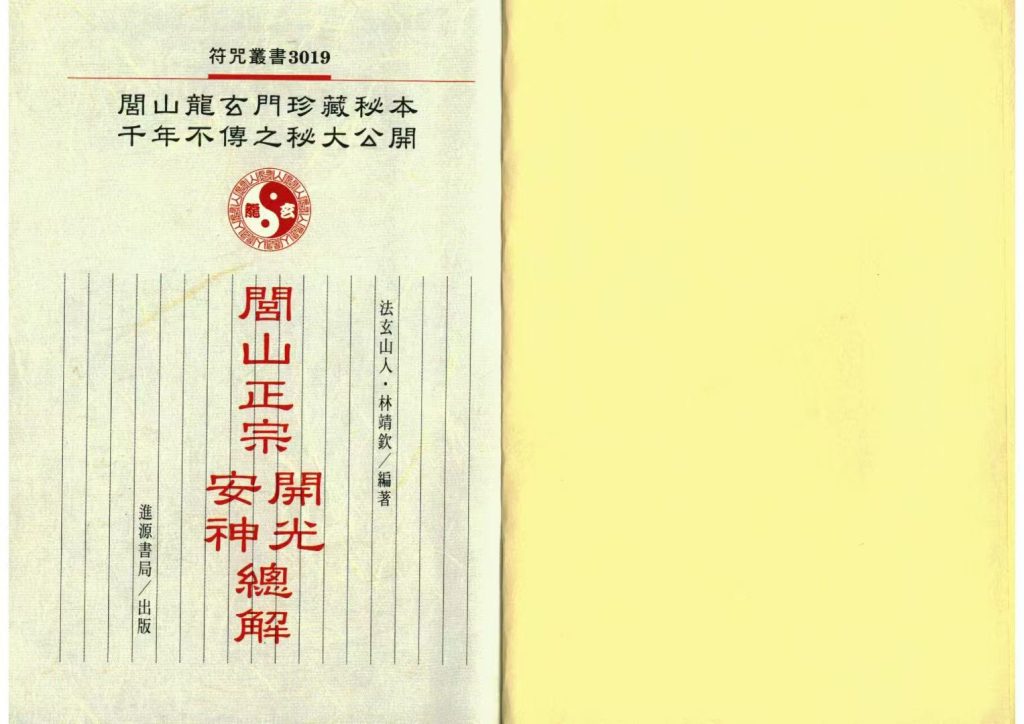 符咒叢書3019
閭山龍玄門珍藏秘本
千年不傳之秘大公開
龍玄
法玄山人・林靖欽／編著
閭山正宗開光安神總解
進源書局／出版